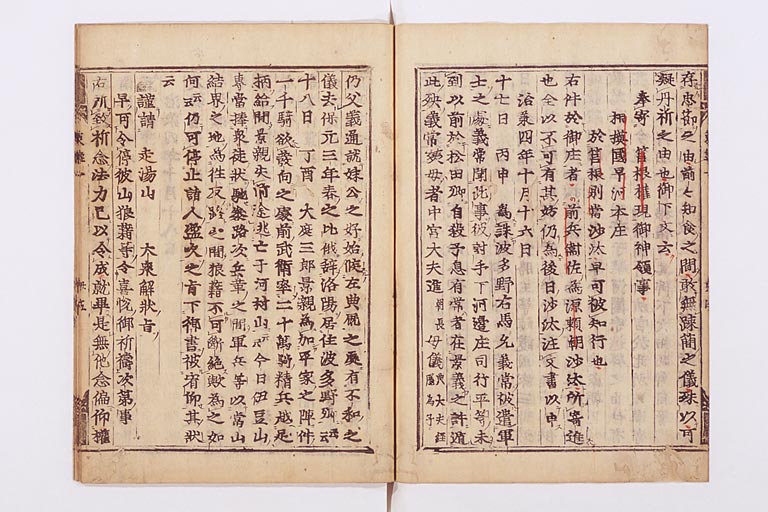 存忠節之由前々知食之間敢無疎簡之儀殊以可
凝丹祈之由也御下文云
奉寄　筥根權現御神領事
相摸國早河本庄
於筥根別當沙汰早可被知行也
右件於御庄者前兵衛佐爲源頼朝沙汰所寄進
也全以不可有其妨仍爲後日沙汰注文書以申
治承四年十月十六日
十七日　丙申　爲誅波多野右馬允義常被遣軍
士之處義常聞此事彼討手下河邊庄司行平等未
到以前於松田郷自殺子息有常者在景義之許遁
此殃義常姨母者中宮大夫進朝長母儀典大夫經爲子
仍父義通就妹公之好始候左典厩之處有不和之
儀去保元三年春之比俄辞洛陽居住波多野郷云々
十八日　丁酉　大庭三郎景親爲加平家之陣伴
一千騎欲發向之處前武衛率二十萬騎精兵越足
柄給間景親失前途逃亡于河村山云々今日伊豆山
專當捧衆徒状馳參路次兵革之間軍兵等以當山
結界之地爲往反路之間狼藉不可斷絶歟爲之如
何云々仍可停止諸人濫吹之旨下御書被宥仰其状
云
謹請　走湯山　大衆解状旨
早可令停彼山狼藉等令喜悦御祈禱次第事
右所致祈念法力已以令成就畢是無他念偏仰權